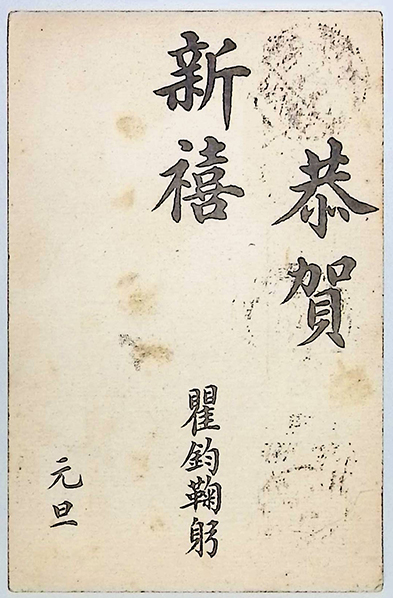 恭賀
新禧
瞿鈞鞠躬
元旦